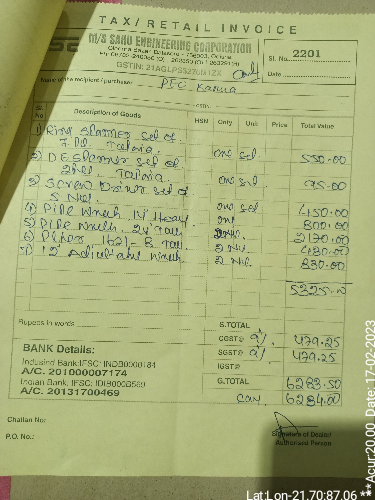 TAX / RETAIL INVOICE
M/S SAHU ENGINEERING CORPORATION
Sl. No. 2201
Date
Name of the recipient / purchaser
Sl. No Description of Goods HSN Qnty Unit Price Total Value
1) Ring Spanner set of one set 550.00
7 Pc. Taparia.
2) DE Spanner set of one set 95.00
Taparia.
3) Screw Driver set of one set 450.00
5 Nel.
4) Pipe Wrench 14" Heavy 800.00
5) Pipe Wrench 24" 2170.00
6) Plier 1621-8 Tap. 2 Nel. 480.00
7) 12" Adjustable Wrench 2 Nel. 880.00
5325.00
Rupees in words
S.TOTAL
CGST@ 9% 479.25
SGST@ 9% 479.25
IGST@
G.TOTAL 6283.50
6284.00
BANK Details:
Indusind Bank IFSC:
A/C. 201000007174
Indian Bank, IFSC:
A/C. 20131700469
Challan No:
P.O. No.:
Signature of Dealer/
Authorised Person
Lat:Lon-21.70:87.06 **Acur:20.00 Date: 17-02-2023